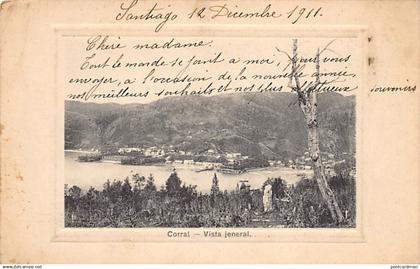 Santiago 12 Decembre 1911.
Chère madame.
Tout le monde se joint a moe, pour vous
envoyer, a l'occasion de la nouvelle année,
nos meilleurs souhaits et nos plus affectueux souvenirs
Corral — Vista jeneral.